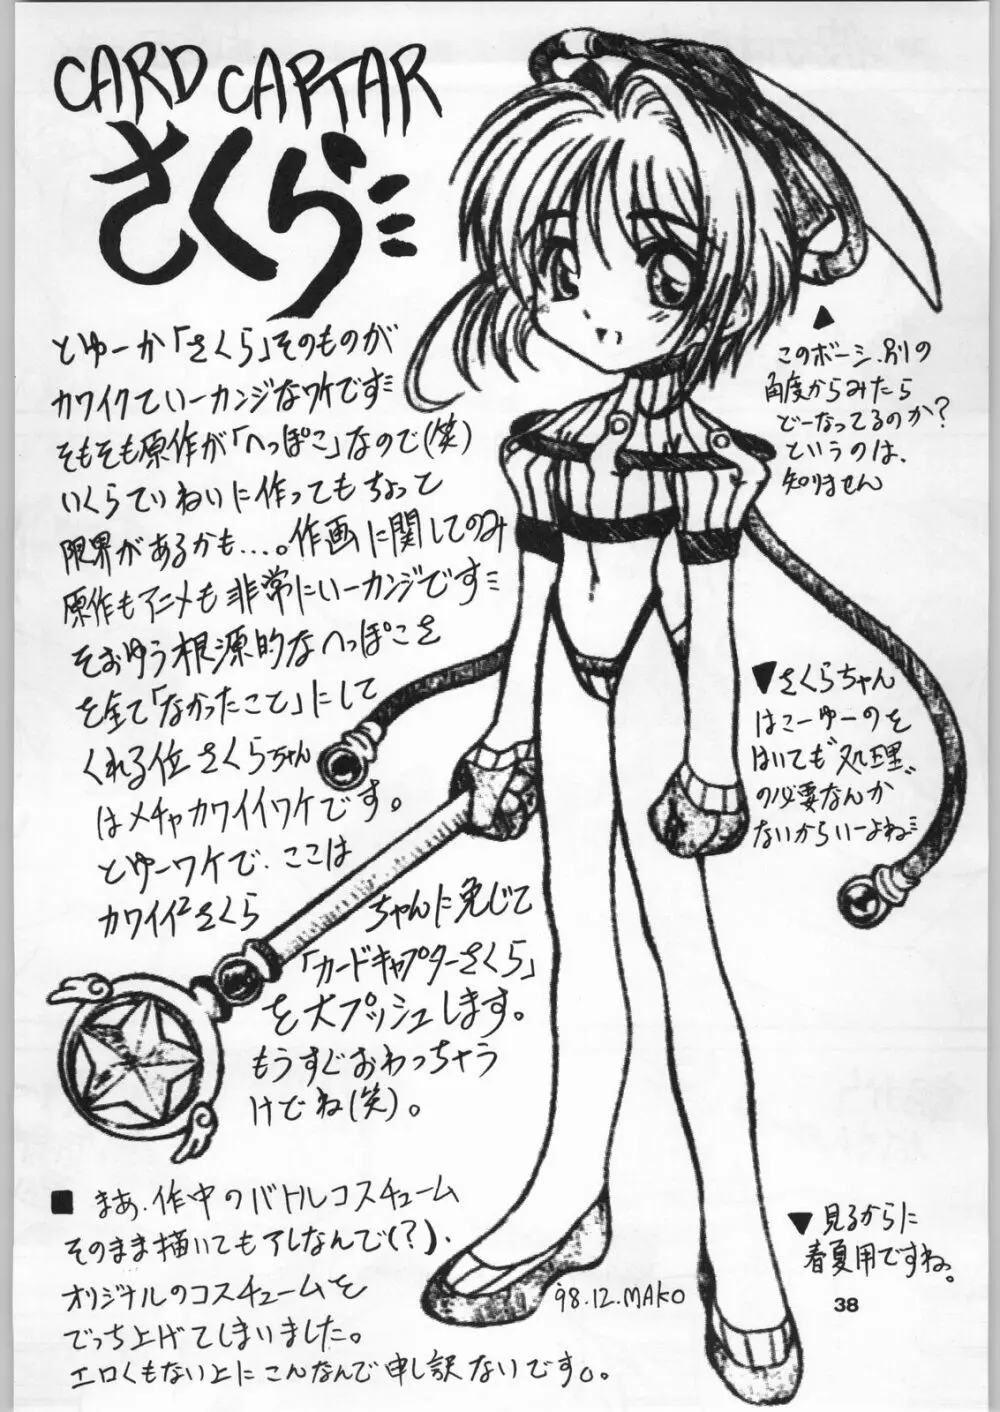 CARD CAPTAR
さくら
とゆーか「さくら」そのものが
カワイクていーカンジなワケです
そもそも原作が「へっぽこ」なので(笑)
いくらていねいに作ってもちょっと
限界があるかも…。作画に関してのみ
原作もアニメも非常にいーカンジです
そおゆう根源的なへっぽこさ
を全て「なかったこと」にして
くれる位さくらちゃん
はメチャカワイイワケです。
とゆーワケで、ここは
カワイイ2さくら ちゃんに免じて
「カードキャプターさくら」
を大プッシュします。
もうすぐおわっちゃう
けどね(笑)。
■まぁ、作中のバトルコスチューム
そのまま描いてもアレなんで(?)、
オリジナルのコスチュームを
でっち上げてしまいました。
エロくもない上にこんなんで申し訳ないです。
▲
このボーシ、別の
角度からみたら
どーなってるのか?
というのは、
知りません
▼さくらちゃん
はこーゆーのを
はいても"処理"
の必要なんか
ないからいーよね
▼見るからに
春夏用ですね。
'98.12.MAKO
38